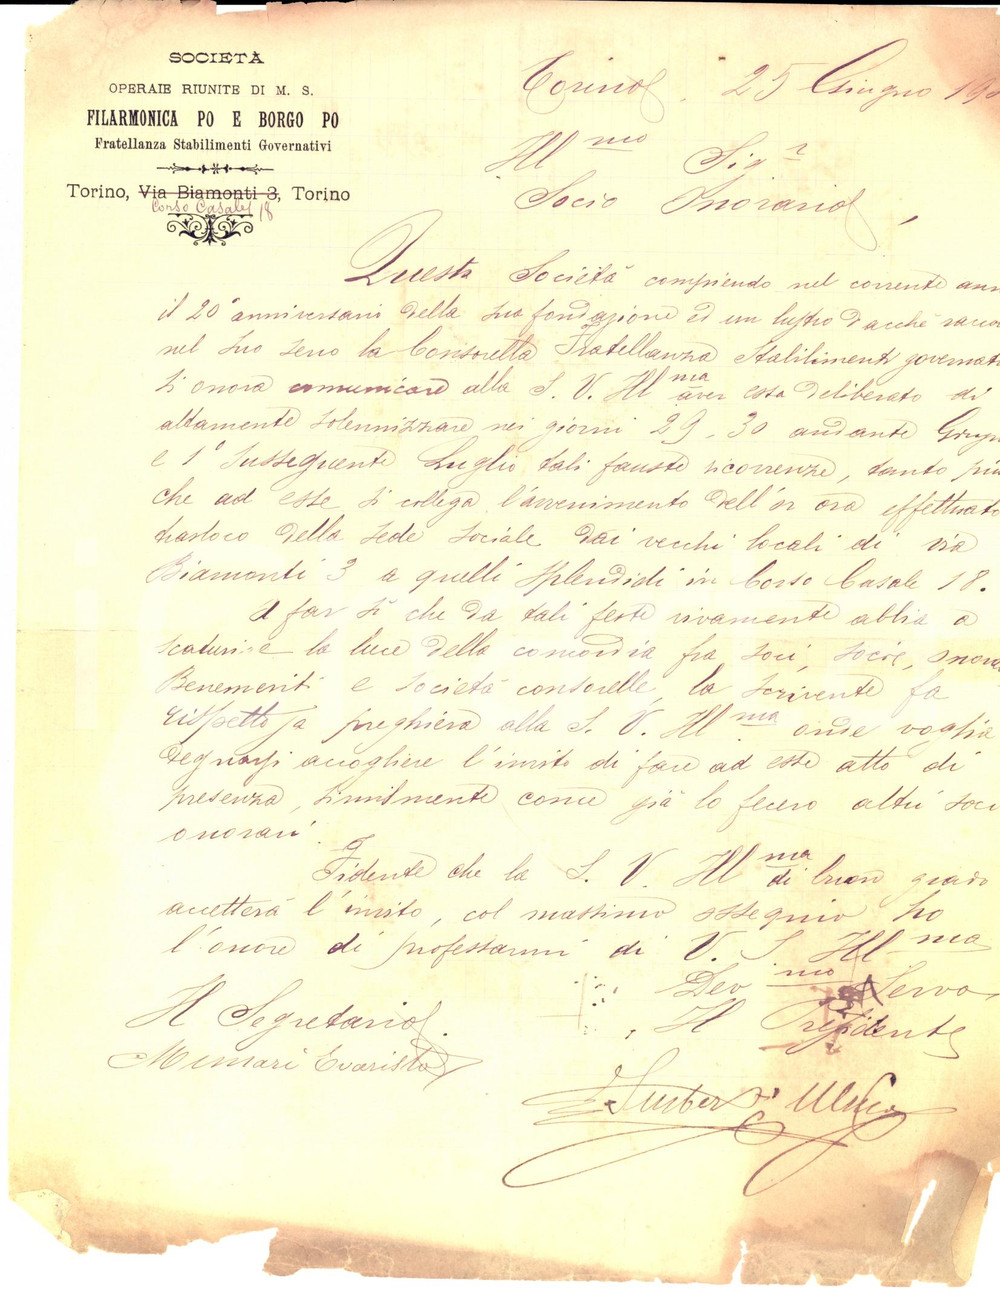 SOCIETÀ
OPERAIE RIUNITE DI M. S.
FILARMONICA PO E BORGO PO
Fratellanza Stabilimenti Governativi
Torino, Via Biamonti 3, Torino
Corso Casale 18
Torino, 25 Giugno 19
Ill mo Sig r
Socio Onorario,
Questa Società compiendo nel corrente ann
il 20° anniversario della sua fondazione ed un lustro dacchè racco
nel suo seno la Consorella Fratellanza Stabilimenti governati
si onora comunicare alla S. V. Ill ma aver essa deliberato di
altamente solennizzare nei giorni 29, 30 andante Giugn
e 1° susseguente Luglio tali fauste ricorrenze, tanto più
che ad esse si collega l'avvenimento dell'or ora effettuato
trasloco della sede sociale dai vecchi locali di via
Biamonti 3 a quelli splendidi in Corso Casale 18.
A far sì che da tali feste vivamente abbia a
scaturire la luce della concordia fra soci, socie, onora
Benemeriti e società consorelle, la scrivente fa
rispettosa preghiera alla S. V. Ill ma onde voglia
degnarsi accogliere l'invito di fare ad esse atto di
presenza, similmente come già lo fecero altri soci
onorari.
Fidente che la S. V. Ill ma di buon grado
accetterà l'invito, col massimo ossequio ho
l'onore di professarmi di V. S. Ill ma
Dev mo Servo
Il Segretario
Il Presidente
Evaristo